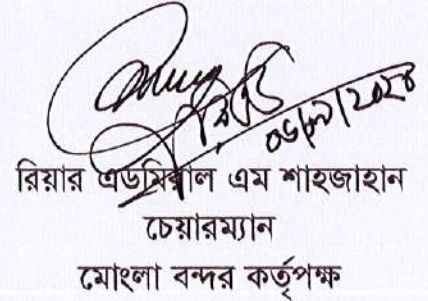 রিয়ার এডমিরাল এম শাহজাহান
চেয়ারম্যান
মোংলা বন্দর কর্তৃপক্ষ